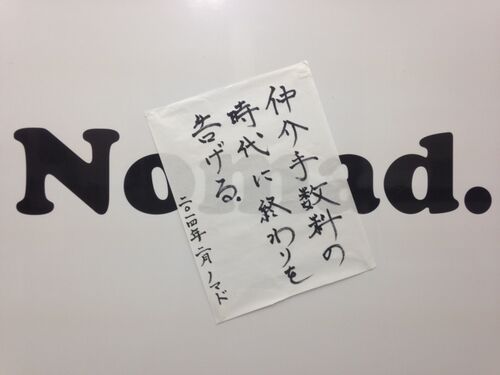 Nomad.
仲介手数料の
時代に終わりを
告げる。
二〇一四年 二月 ノマド